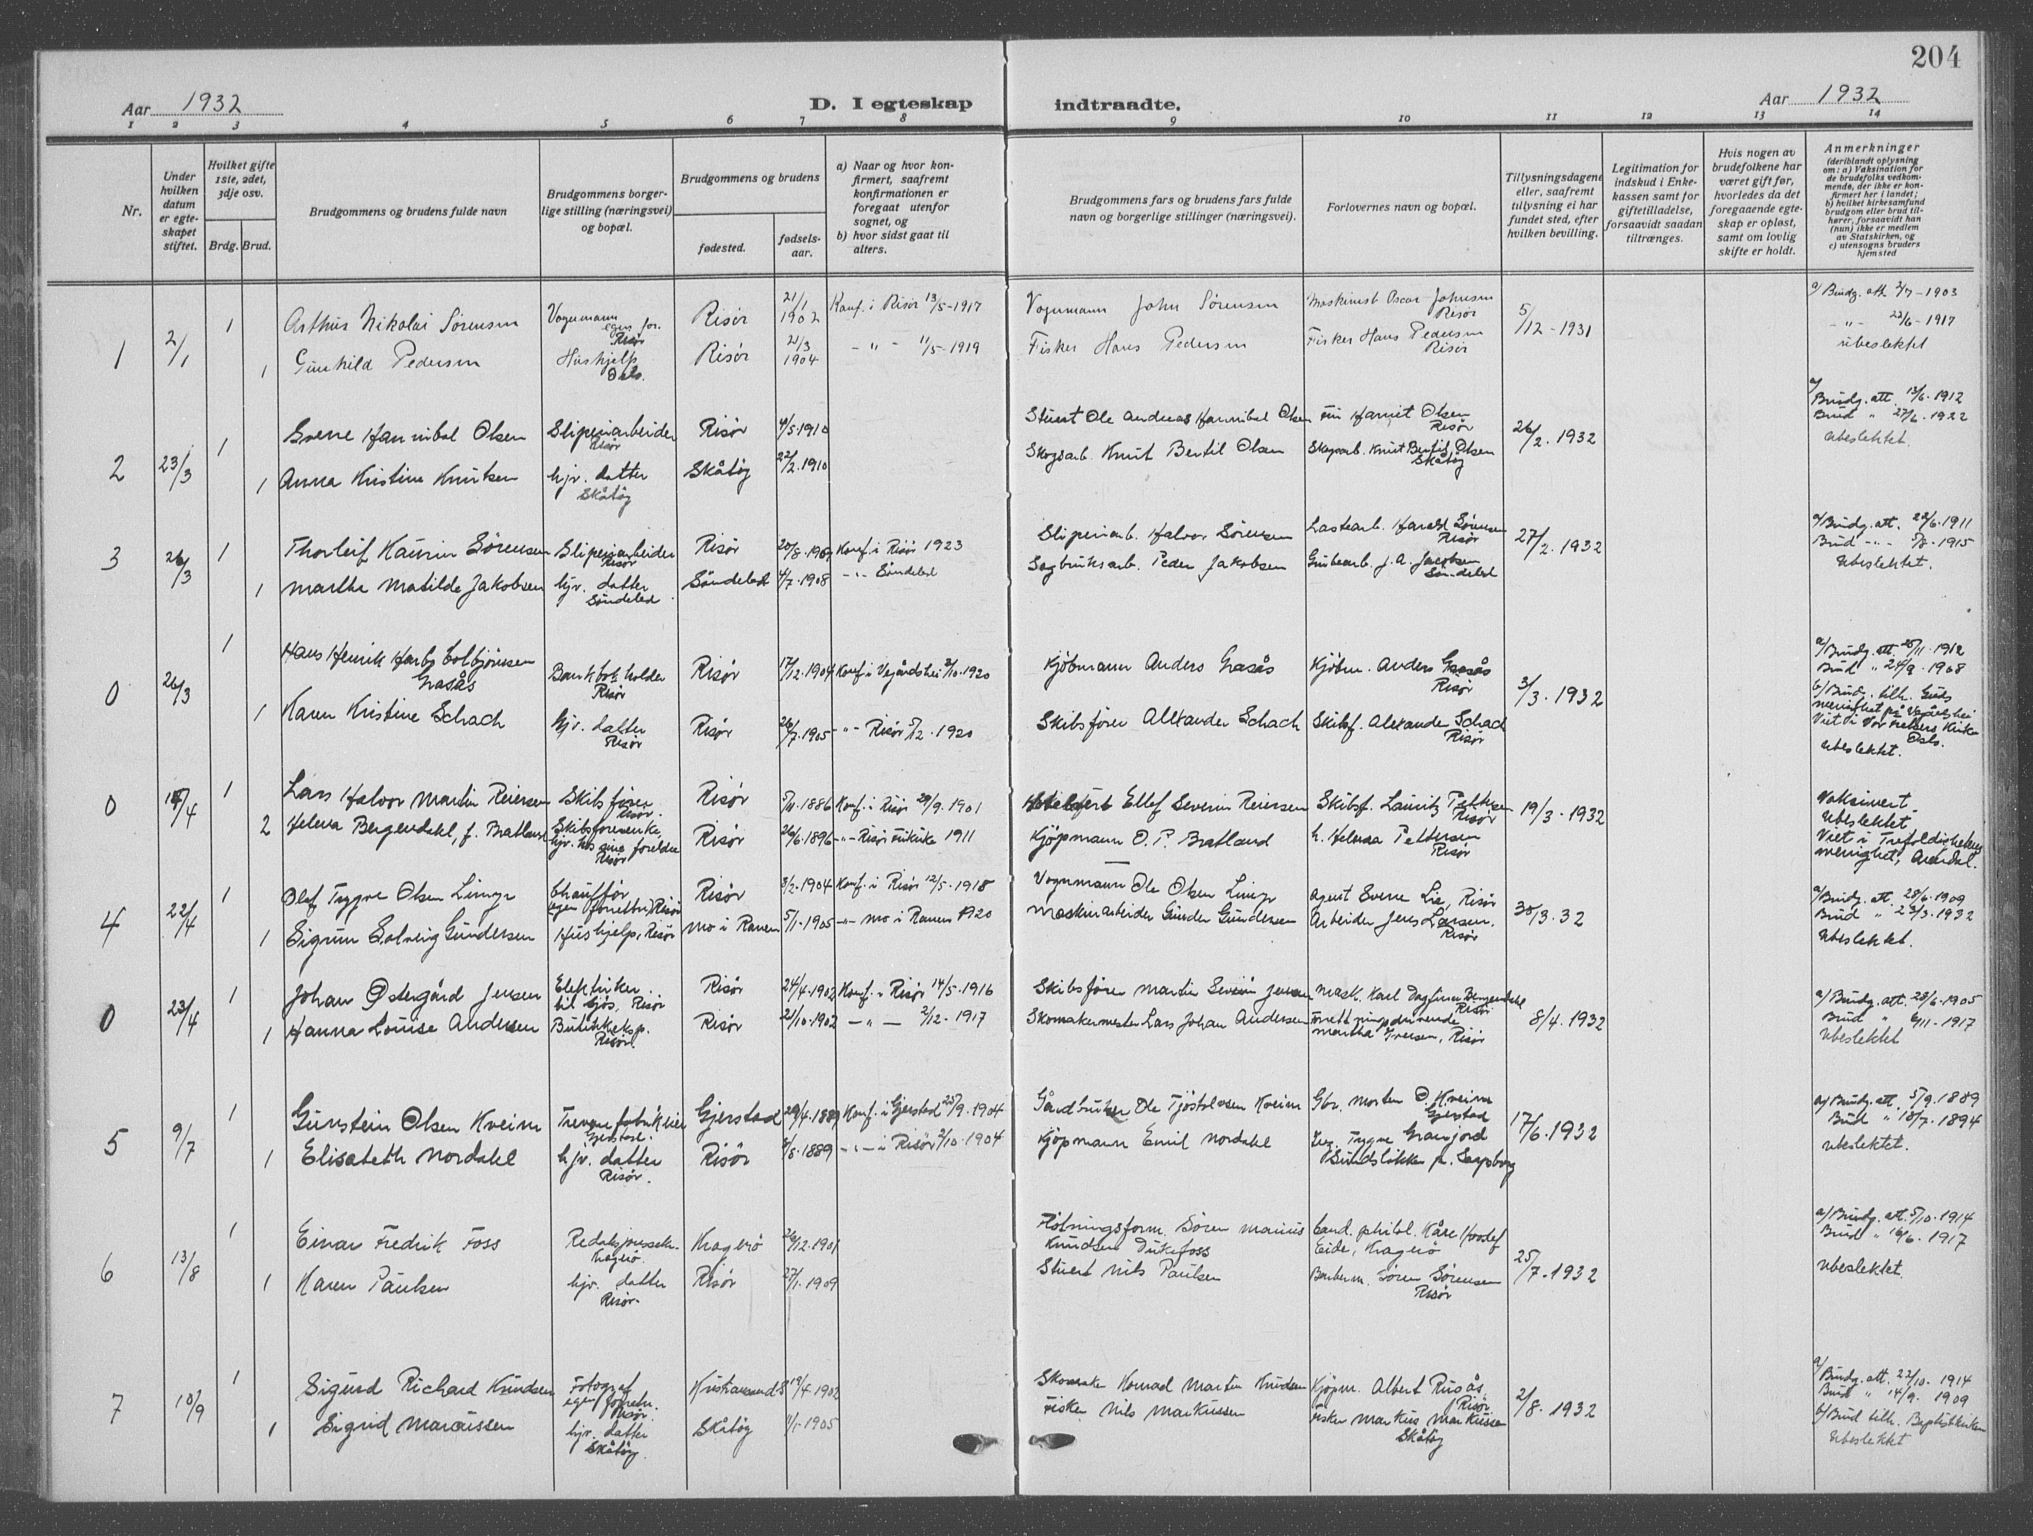 204
Aar 1932
D. I egteskap indtraadte.
Aar 1932
1 2 3 4 5 6 7 8 9 10 11 12 13 14
Nr.
Under hvilken datum er egteskapet stiftet.
Hvilket gifte 1ste, 2det, 3dje osv.
Brdg. Brud.
Brudgommens og brudens fulde navn
Brudgommens borgerlige stilling (næringsvei) og bopæl.
Brudgommens og brudens
fødested.
fødselsaar.
a) Naar og hvor konfirmert, saafremt konfirmationen er foregaat utenfor sognet, og
b) hvor sidst gaat til alters.
Brudgommens fars og brudens fars fulde navn og borgerlige stillinger (næringsvei).
Forlovernes navn og bopæl.
Tillysningsdagene eller, saafremt tillysning ei har fundet sted, efter hvilken bevilling.
Legitimation for indskud i Enkekassen samt for giftetilladelse, forsaavidt saadan tiltrænges.
Hvis nogen av brudefolkene har været gift før, hvorledes da det foregaaende egteskap er opløst, samt om lovlig skifte er holdt.
Anmerkninger
(deriblandt oplysning om: a) Vaksination for de brudefolks vedkommende, der ikke er konfirmert her i landet;
b) hvilket kirkesamfund brudgom eller brud tilhører, forsaavidt han (hun) ikke er medlem av Statskirken, og
c) utensogns bruders hjemsted
1 2/1 1 Arthur Nikolai Sørensen Vognmann egen for. Risør Risør 21/1 1902 Konf. i Risør 13/5-1917 Vognmann John Sørensen Maskinist Oscar Johnsen Risør 5/12-1931 a/ Brudg. att. 2/7-1903
1 Gunhild Pedersen Hushjelp Oslo. Risør 21/3 1904 - " - 11/5-1919 Fisker Hans Pedersen Fisker Hans Pedersen Risør - " - 22/6-1917
ubeslektet
2 23/3 1 Sverre Hannibal Olsen Sliperiarbeider Risør Risør 4/5-1910 Stuert Ole Andreas Hannibal Olsen Risør 26/2-1932 a/ Brudg. att. 13/6-1912
1 Anna Kristine Knutsen hjv. datter Skåtøy Skåtøy 22/2-1910 Skogsarb. Knut Bertil Olsen Skogsarb. Knut Bertil Olsen Skåtøy Brud " 27/6-1922
ubeslektet.
3 26/3 1 Thorleif Haurin Sørensen Sliperiarbeider Risør Risør Konf. i Risør 1923 Sliperiarb. Halvor Sørensen Lastearb. Harald Sørensen Risør 27/2-1932 a/ Brudg. att. 28/6-1911
1 Martha Matilde Jakobsen hjv. datter Søndeled Søndeled 4/7-1908 - " - Søndeled Sagbruksarb. Peder Jakobsen Grubearb. J. A. Jacobsen Søndeled Brud - " - 5/8-1915
Ubeslektet.
0 26/3 1 Hans Henrik Harby Colbjørnsen Gråsås Bankbokholder Risør Risør 17/12-1904 Konf. i Vegårdshei 3/10-1920 Kjøbmann Anders Gråsås Kjøbm. Anders Gråsås Risør 3/3-1932 a/ Brudg. att. 25/11-1912
1 Karen Kristine Schach hjv. datter Risør Risør 26/7-1905 - " - Risør 5/12-1920 Skibsfører Alexander Schach Skibsf. Alexander Schach Risør Brud " 24/9-1908
b/ Brudg. tilh. Guds menighet på Vegårdshei
Viet i Vor Frelsers Kirke Oslo.
Ubeslektet.
0 1 Lars Halvor Martin Reiersen Skibsfører Risør. Risør 5/11-1886 Konf. i Risør 29/9-1901 Ellef Severin Reiersen Skibsf. Lauritz Pettersen Risør 19/3-1932 Vaksinert
2 Helena Bergendahl, f. Bratland Skibsførerenke, hjv. hos sine foreldre Risør Risør 26/6-1896 - " - Risør Frikirke 1911 Kjøpmann O. P. Bratland h. Helena Pettersen Risør Ubeslektet
Viet i Trefoldighetens menighet, Arendal.
4 22/4 1 Olef Trygve Olsen Linge Chauffør egen forretn., Risør Risør 3/2-1904 Konf. i Risør 12/5-1918 Vognmann Ole Olsen Linge Agent Sverre Lie, Risør 30/3-32 a/ Brudg. att. 28/6-1909
1 Sigrun Solveig Gundersen Hushjelp, Risør Mo i Ranen 5/1-1905 - " - Mo i Ranen 1920 Maskinarbeider Gunder Gundersen Arbeider Jens Larsen. Risør Brud " 23/3-1932
Ubeslektet.
0 23/4 1 Johan Østergård Jensen Elektriker til sjøs, Risør Risør 24/4-1902 Konf. i Risør 14/5-1916 Skibsfører Martin Severin Jensen Mask. Karl Dagfinn Bergendahl Risør 8/4-1932 a/ Brudg. att. 28/6-1905
1 Hanna Louise Andersen Butikkeksp. Risør. Risør 22/10-1902 - " - 2/12-1917 Skomakermester Lars Johan Andersen Forretningsdrivende Martha Iversen, Risør Brud " 6/11-1917
Ubeslektet
5 9/7 1 Gunstein Olsen Kveim Trevarefabrikeier Gjerstad. Gjerstad 29/4-1889 Konf. i Gjerstad 25/9-1904 Gårdbruker Ole Tjøstolvsen Kveim Gbr. Morten O. Kveim Gjerstad 17/6-1932 a/ Brudg. att. 5/9-1889
1 Elisabeth Nordahl hjv. datter Risør. Risør 3/8-1889 - " - i Risør 2/10-1904 Kjøpmann Emil Nordahl Ing. Trygve Granfjord Sundsløkka pr. Sarpsborg Brud " 18/7-1894
Ubeslektet.
6 13/8 1 Einar Fredrik Foss Redaksjonssekr. Kragerø. Kragerø 26/12-1901 Fløtningsform. Søren Marius Knudsen Dukefoss Cand. philol. Kåre Hoodef Eide, Kragerø 25/7-1932 a/ Brudg. att. 5/10-1914
1 Karen Paulsen hjv. datter Risør. Risør 27/1-1909 Stuert Nils Paulsen Barberm. Søren Sørensen Risør Brud " 16/6-1917
Ubeslektet.
7 10/9 1 Sigurd Richard Knudsen Fotograf egen forretn. Risør. Kristiansund S 19/4-1902 Skomake Konrad Martin Knudsen Kjøpm. Albert Rusås, Risør 2/8-1932 a/ Brudg. att. 22/10-1914
1 Sigrid Marcussen hjv. datter Skåtøy. Skåtøy 1/1-1905 Fisker Nils Markussen Fisker Markus Markussen Skåtøy Brud " 14/9-1909
b/ Brud tilh. Baptistkirken
Ubeslektet